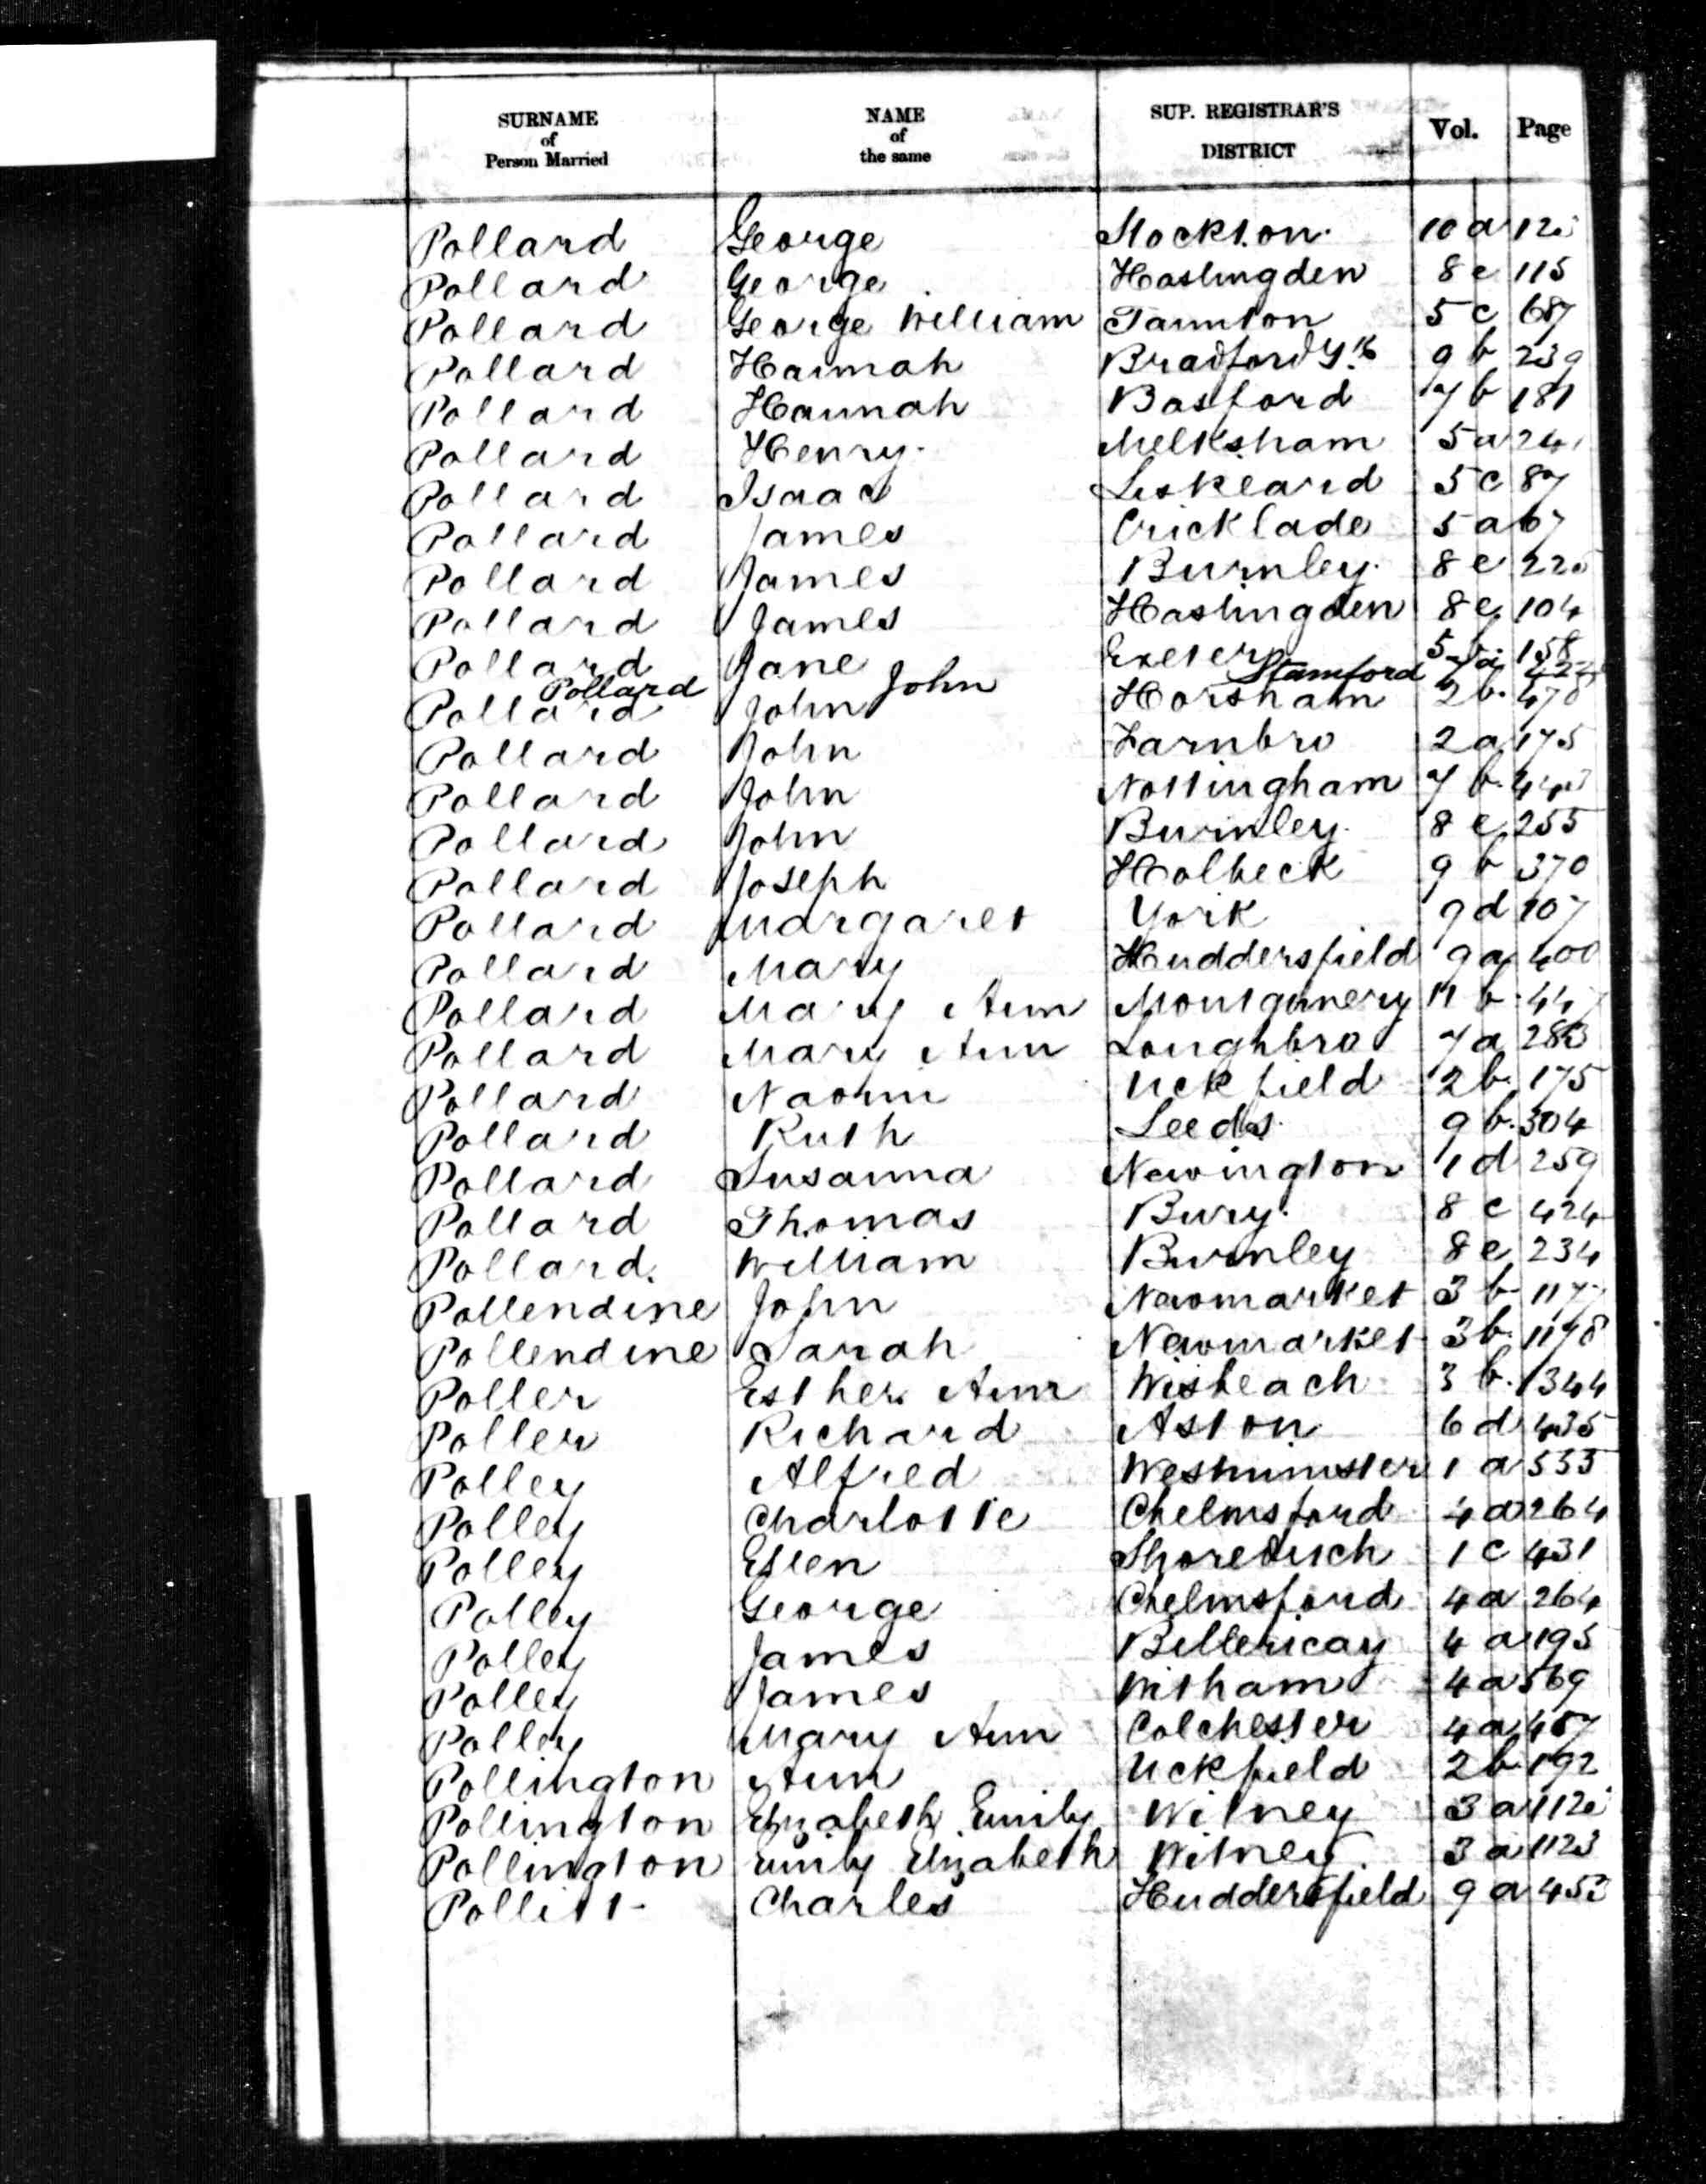 SURNAME of Person Married NAME of the same SUP. REGISTRAR'S DISTRICT Vol. Page
Pollard George Stockton 10 a
Pollard George Haslingden 8 e 115
Pollard George William Taunton 5 c 687
Pollard Hannah Bradford Yk 9 b 239
Pollard Hannah Basford 7 b 181
Pollard Henry Melksham 5 a
Pollard Isaac Liskeard 5 c 87
Pollard James Cricklade 5 a 67
Pollard James Burnley 8 e
Pollard James Haslingden 8 e 104
Pollard Jane Exeter 5 158
Pollard John Stamford 7 a
Pollard John Horsham 2 b 470
Pollard John Farnbro 2 a 175
Pollard John Nottingham 7 b
Pollard John Burnley 8 e 255
Pollard Joseph Holbeck 9 b 370
Pollard Margaret York 9 d 107
Pollard Mary Huddersfield 9 a 400
Pollard Mary Ann Montgomery 11 b
Pollard Mary Ann Loughbro 7 a 283
Pollard Naomi Uckfield 2 b 175
Pollard Ruth Leeds 9 b 304
Pollard Susanna Newington 1 d 259
Pollard Thomas Bury 8 c 424
Pollard William Burnley 8 e 234
Pollendine John Newmarket 3 b
Pollendine Sarah Newmarket 3 b 1178
Poller Esther Ann Wisbeach 3 b 1344
Poller Richard Aston 6 d 435
Polley Alfred Westminster 1 a 555
Polley Charlotte Chelmsford 4 a 264
Polley Ellen Shoreditch 1 c 431
Polley George Chelmsford 4 a 264
Polley James Billericay 4 a 195
Polley James Witham 4 a 569
Polley Mary Ann Colchester 4 a 457
Pollington Ann Uckfield 2 b 192
Pollington Elizabeth Emily Witney 3 a
Pollington Emily Elizabeth Witney 3 a 1123
Pollitt Charles Huddersfield 9 a